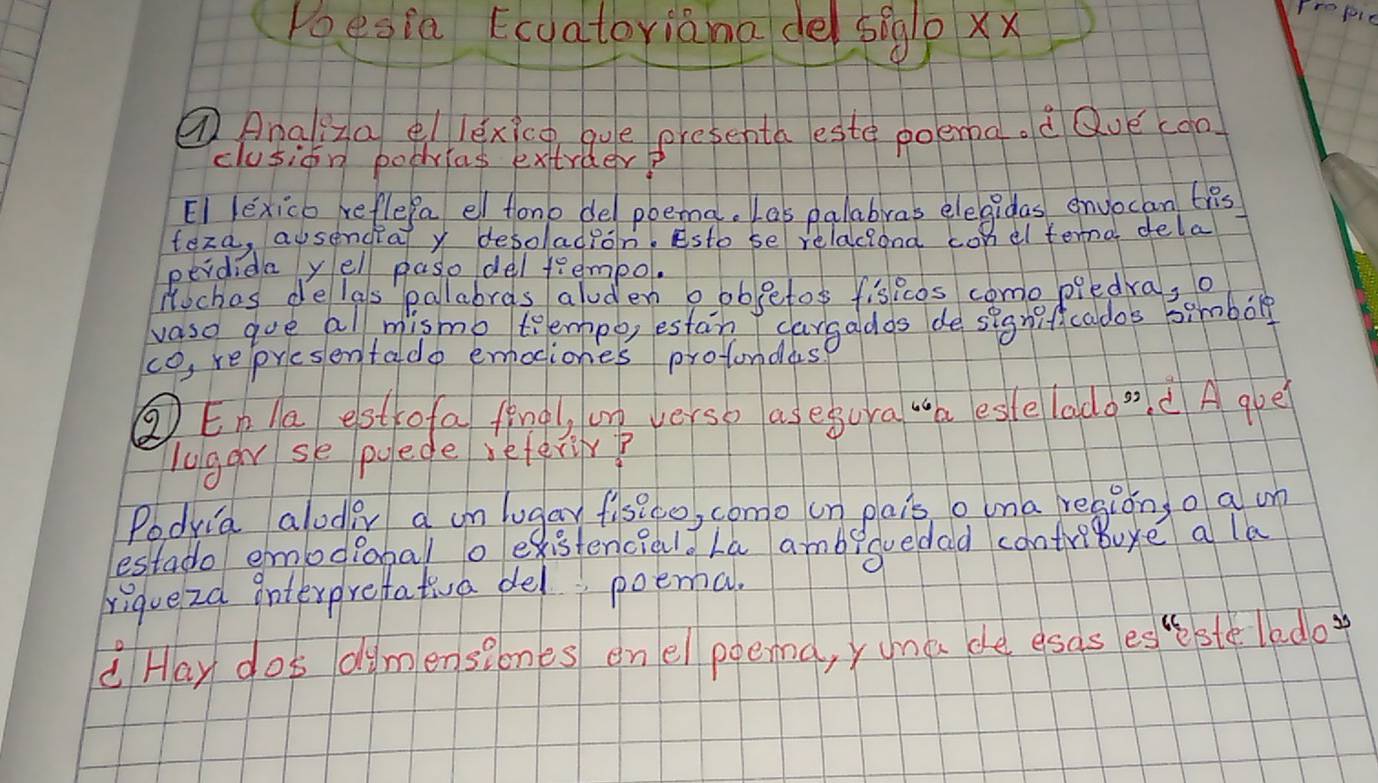 Poesia Ecuatoriana del siglo XX
Propie
① Analiza el léxico que presenta este poema. ¿Que con-
clusión podrias extraer?
El léxico refleja el tono del poema. Las palabras elegidas invocan tris
teza, ausencia y desolación. Esto se relaciona con el tema de la
peidida y el paso del tiempo.
Muchas de las palabras aluden o objetos físicos como piedra, o
vaso que al mismo tiempo, están cargados de significados simbóli
co, representado emociones profundas.
② En la estrofa final, un verso asegura “a este lado”. ¿ A qué
lugar se puede referir?
Podría aludir a un lugar físico, como un país o una región, o a un
estado emocional o existencial. La ambiguedad contribuyé a la
riqueza interpretativa del poema.
¿ Hay dos dimensiones en el poema, y una de esas es “este lado”